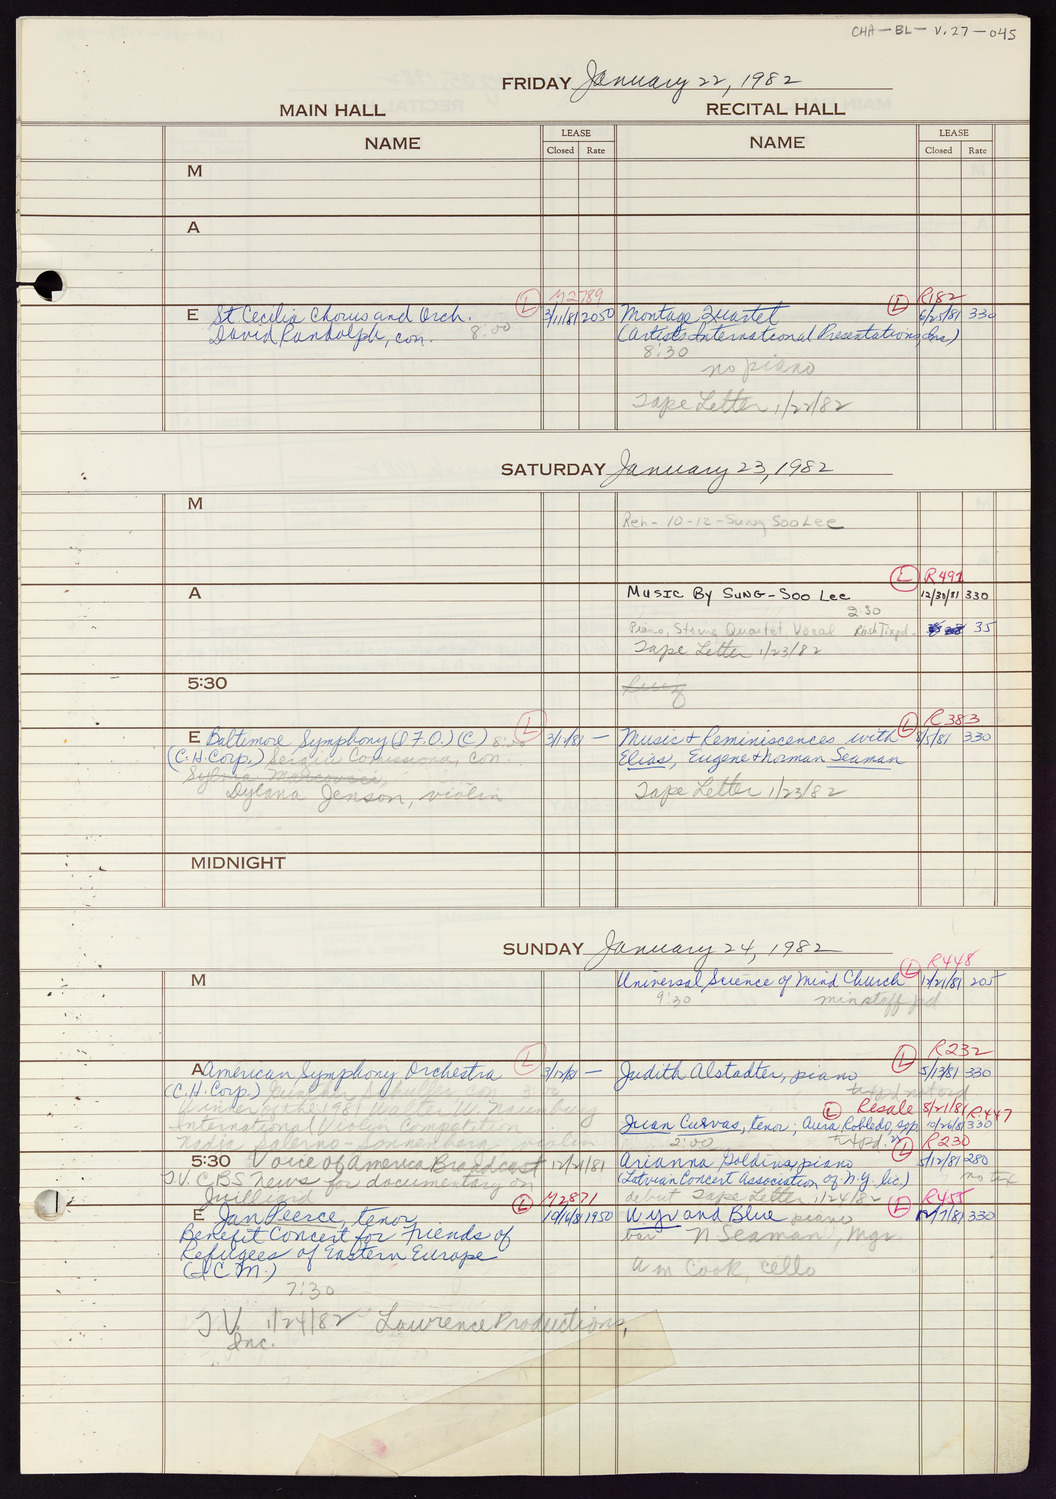 CHA-BL-V.27-045
FRIDAY January 22, 1982
MAIN HALL
RECITAL HALL
NAME
LEASE
Closed Rate
NAME
LEASE
Closed Rate
M
A
L M2789
E St Cecilia Chorus and Orch. 3/11/81 2050
David Randolph, con. 8:00
L R182
Montage Quartet 6/25/81 330
(Artists International Presentations, Inc)
8:30
no piano
Tape Letter 1/22/82
SATURDAY January 23, 1982
M
Reh- 10-12- Sung Soo Lee
A
L R491
Music By Sung-Soo Lee 12/30/81 330
2:30
Piano, String Quartet, Vocal 35
Tape Letter 1/23/82
5:30
L
E Baltimore Symphony (I.F.O.) (C) 8:00 –
(C.H. Corp.) Sergiu Comissiona, con.
Sylvia Marcovici,
Dylana Jenson, violin
L R383
Music & Reminiscences with 330
Elias, Eugene & Norman Seaman
Tape Letter 1/23/82
MIDNIGHT
SUNDAY January 24, 1982
M
L R448
Universal Science of Mind Church 205
9:30 min staff pd
L
A American Symphony Orchestra 3/12/81 –
(C.H. Corp.) Gunther Schuller, con. 3:00
Winner of the 1981 Walter W. Naumburg
International Violin Competition
Nadja Salerno-Sonnenberg, violin
L R232
Judith Alstadter, piano 5/13/81 330
L Resale 8/21/81 R447
Juan Cuevas, tenor; Aura Robledo, sop. 10/26/81 330
2:00
5:30 Voice of America Broadcast 12/21/81
T.V. CBS News for documentary on
Juilliard
L R230
Arianna Goldina, piano 5/12/81 280
(Latvian Concert Association of N.Y. Inc.)
debut Tape Letter 1/24/82
L M2871
E Jan Peerce, tenor 10/6/81 1950
Benefit Concert for Friends of
Refugees of Eastern Europe
(I.C.M.)
7:30
T.V. 1/24/82 Lawrence Productions,
Inc.
L R455
and Blue piano 330
bar N Seaman, Mgr.
Wm Cook, cello